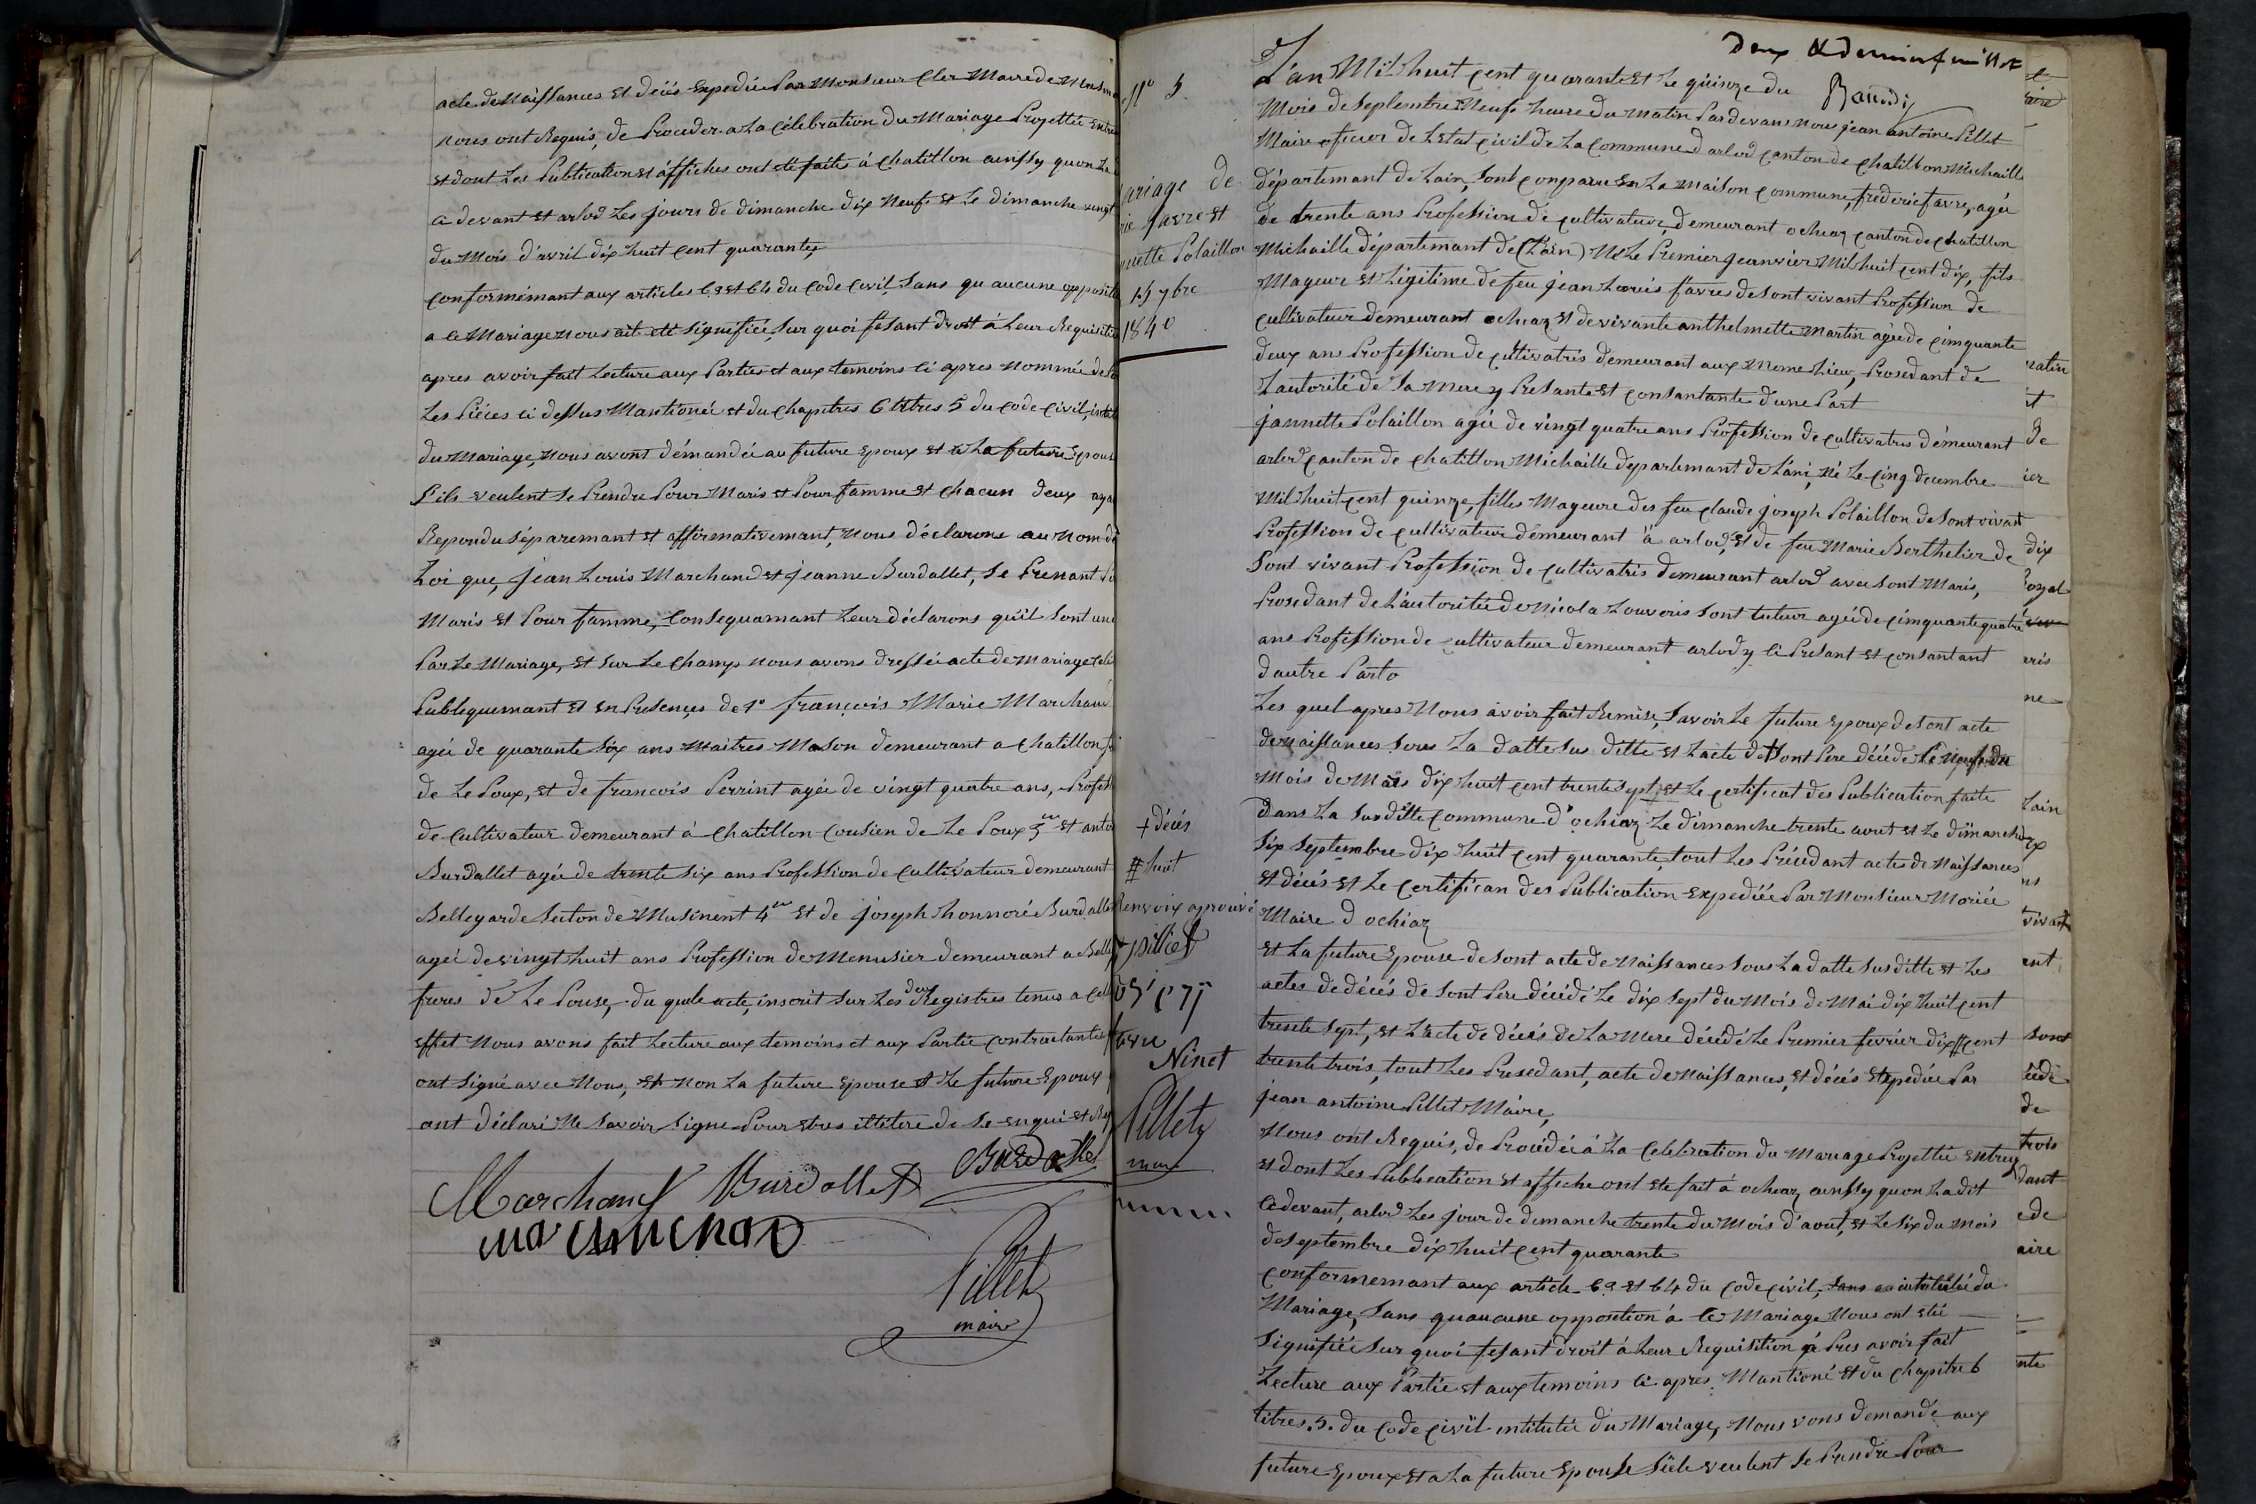 acte de Naissances et décés Expediée Par Monsieur Cler Maire de
nous ont Requis, de Proceder a La Célébration du Mariage Projettée Entre
et dont Les Publication et affiches ont été faites à Chatillon ainssy quon La
a devant et arlod Les jours de dimanche dix Neufs et Le dimanche vingt
du Mois d'avril dix huit Cent quarante,
Conformémant aux articles 63 et 64 du Code Civil, Sans qu aucune
a ce Mariage nous ait été Signifiée, Sur quoi fesant droit à Leur
apres avoir fait Lecture aux Parties et aux temoins ci apres Nommée
Les Piéces ci dessus Mantionée et du Chapitres 6 titres 5 du Code Civil,
du Mariage, nous avont démandée au future Epoux et a La future
S'ils veulent Se Prendre Pour Maris et Pour famme et Chacun deux
Repondu Séparemant et affirmativemant, Nous déclarons au Nom de
Loi que, Jean Louis Marchand et Jeanne Burdallet, Se Prenant
Maris et Pour famme, Consequamant Leur déclarons qu'il Sont
Par Le Mariage, et Sur Le Champ nous avons dressée acte de Mariage
Publiquemant et En Presences de 1° françois Marie Marchand
agée de quarante Six ans Maitres Mason demeurant a Chatillon
de Le Poux, et de francois Perrint agée de vingt quatre ans,
de Cultivateur demeurant à Chatillon Cousien de Le Poux 3me et
Burdallet agée de trente Six ans Profession de Cultivateur demeurant
Bellegarde Section de Musinent 4me Et de joseph honnoré
agée de vingt huit ans Profession de Menusier demeurant a
freres de Le Pouse, du quele acte, inscrit Sur Les deux Registres tenus a
effet Nous avons fait Lecture aux temoins et aux Partie Contractantes
ont Signé avec Nous, et Non La future Epouse et Le future Epoux
ont déclaré Ne Savoir Signe Pour etres illitere de Ce enqui et
Burdallet
Marchand Burdallet
marchand
Pillet
maire
N° 5
de
favre et
Polaillon
15 7bre
1840
+ décés
# huit
Renvoix aprouvé
pillet
Ninet
Pillet
maire
Deux & dernier feuillet
Baudi
L'an Mil huit Cent quarante et Le quinze du
Mois de Septembre Neufs heure du Matin Pardevant nous jean antoine Pillet
Maire oficier de Létat Civil de La Commune d arlod Canton de Chatillon Michaille
départemant de Lain, Sont Conparu En La Maison Commune, frederic favre, agée
de trente ans Profession de Cultivateur, demeurant ochiaz Canton de Chatillon
Michaille départemant de (L'ain) Né Le Premier Jeanvier Mil huit Cent dix, fils
Mageur et Légitime de feu jean Louis favres de Sont vivant Profession de
Cultivateur demeurant ochiaz et de vivante anthelmette Martin agée de Cimquante
deux ans Profession de Cultivatris demeurant aux Meme Lieu, Prosedant de
Lautorité de Sa Mere y Presante et Consantante dune Part
jannette Polaillon agée de vingt quatre ans Profession de Cultivatris démeurant
arlod Canton de Chatillon Michaille départemant de Lain, Né Le Cinq decembre
Mil huit Cent quinze, filles Mageure des feu Claude joseph Polaillon de Sont vivant
Profession de Cultivateur démeurant à arlod, et de feu Marie Berthelier de
Sont vivant Profession de Cultivatris demeurant arlod avec Sont Maris,
Prosedant de L'autoritée de Nicola Louvois Sont tuteur agée de Cimquante quatre
ans Profession de Cultivateur demeurant arlod y Ci Presant et Consantant
dautre Parts
Les quel apres Nous avoir fait Remise, Savoir Le future Epoux de Sont acte
de naissances Sous La datte Sus ditte et L'acte de Sont Pere décédé Le Neufs du
Mois de Mars dix huit Cent trente Sept, et Le Certificat des Publication faite
Dans La Susditte Commune d'ochiaz Le dimanche trente aout et Le dimanche
Six Septembre dix huit Cent quarante, tout Les Précedant actes de Naissances
et décés et Le Certifican des Publication Expediée Par Monsieur Moriée
Maire d ochiaz
et La future Epouse de Sont acte de Naissances Sous La datte Susditte et Les
actes de décés de Sont Pere décédé Le dix Sept du Mois de Mai dix huit Cent
trente Sept, et L'acte de décés de La Mere décédé Le Premier février dix # Cent
trente trois, tout Les Presedant, acte de Naissances, et décés Expediée Par
jean antoine Pillet Maire,
Nous ont Requis, de Procédée à La Celebration du Mariage Projettée Entreux
et dont Les Publication et affiche ont ete fait à ochiaz ainssy quon La dit
Cidevant, arlod Les jour de dimanche trente du Mois d'aout, et Le Six du Mois
de Septembre dix huit Cent quarante
Conformemant aux article 63 et 64 du Code Civil, Sans
Mariage, Sans quaucune opposition à Ce Mariage Nous ont etée
Signifiée Sur quoi fesant droit à Leur Requisition à Pres avoir fait
Lecture aux Partie et aux temoins Ci apres Mantioné et du Chapitre 6
titres 5. du Code Civil intitulée du Mariage, Nous vons demandé aux
future Epoux et a La future Epouse Sils veulent Se Prendre Pour